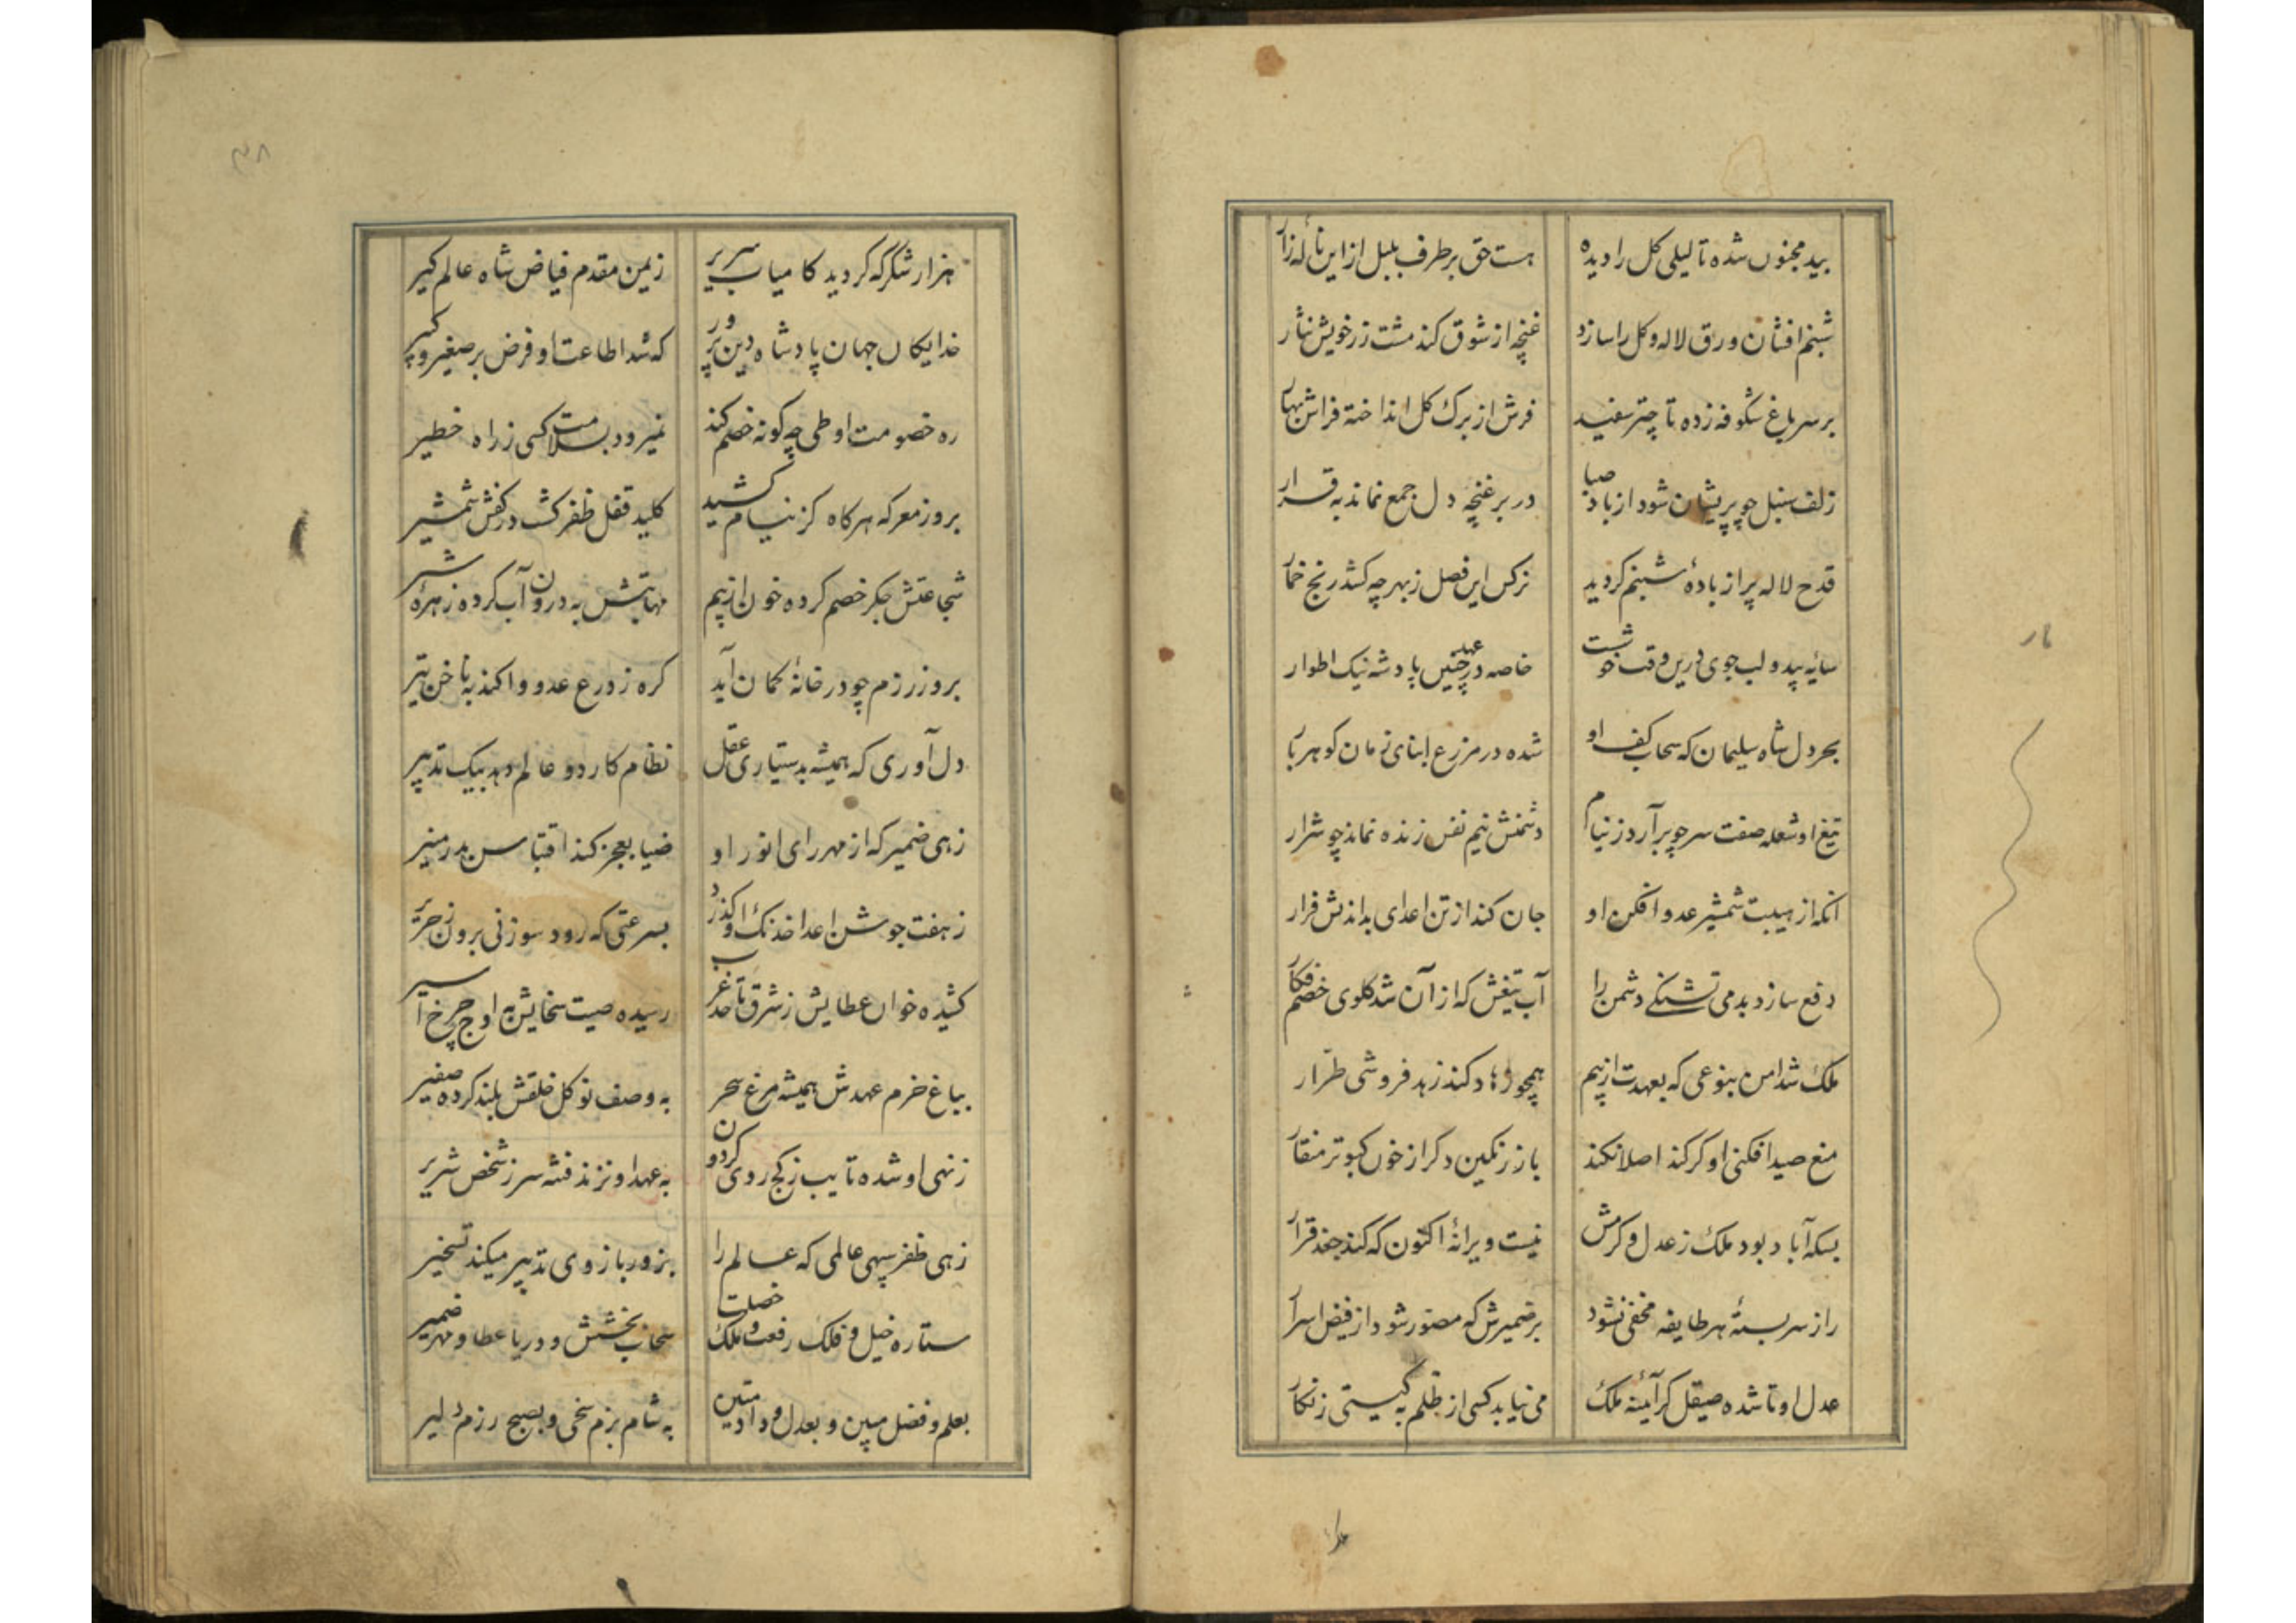 بید مجنوں شده تا لیلی کل را دیده هست حق بر طرف بلبل ازاین نالهٔ زار
شبنم افشان ورق لاله وکل را سازد غنچه از شوق کند مشت زر خویش نثار
بر سر باغ شکوفه زده تا چتر سفید فرش از برک کل انداخته فراش بهار
زلف سنبل چو پریشان شود از باد صبا در بر غنچه دل جمع نماند به قرار
قدح لاله پر از بادهٔ شبنم کردید نرکس این فصل زبهر چه کشد رنج خمار
سایه بید و لب جوی درین وقت خوشست خاصه در عهد چنین پادشه نیک اطوار
بحر دل شاه سلیمان که سحاب کف او شده در مزرع ابنای زمان کوهر بار
تیغ او شعله صفت سر چو برآرد زنیام دشمنش نیم نفس زنده نماند چو شرار
انکه از هیبت شمشیر عدو افکن او جان کند از تن اعدای بداندیش فرار
دفع سازد بدمی تشنکی دشمن را آب تیغش که از آن شد کلوی خصم فکار
ملک شد امن بنوعی که بعهدت از بیم همچو دزد کند زهد فروشی طرّار
منع صید افکنی او کر کند اصلا نکند باز رنکین دکر از خون کبوتر منقار
بسکه آباد بود ملک ز عدل و کرمش نیست ویرانهٔ اکنون که کند جغد قرار
راز سربستهٔ هر طایفه مخفی نشود بر ضمیرش که مصور شود از فیض اسرار
عدل او تا شده صیقل کر آئینه ملک می نیابد کسی از ظلم به کیستی زنکار
هزار شکر که کردید کامیاب سریر زیمن مقدم فیاض شاه عالم کیر
خدایکاں جهان پادشاه دین پرور که شد اطاعت او فرض بر صغیر و کبیر
ره خصومت او طی چه کونه خصم کند نمیرود بسلامت کسی ز راه خطیر
بروز معرکه هرکاه کز نیام کشید کلید قفل ظفر کشت در کفش شمشیر
شجاعتش جکر خصم کرده خون از بیم مهابتش به درون آب کرده زهرهٔ شیر
بروز رزم چو در خانهٔ کمان آید کره ز درع عدو وا کند به ناخن تیر
دل آوری که همیشه بدستیاری عقل نظام کار دو عالم دهد بیک تدبیر
زهی ضمیر که از مهر رای انور او ضیا بعجز کند اقتباس بدر منیر
ز هفت جوشن اعدا خدنک او کذرد بسرعتی که رود سوزنی برون ز حریر
کشیده خواں عطایش ز شرق تا حد غرب رسیده صیت سخایش به اوج چرخ اثیر
بباغ خرم عهدش همیشه مرغ سحر به وصف نو کل خلقش بلند کرده صفیر
زنهی او شده تایب ز کج روی کردون به عهد او نزند فتنه سر ز شخص شریر
زهی ظفر سپهی عالمی که عالم را بزور بازوی تدبیر میکند تسخیر
ستاره خیل و فلک رفعت و ملک خصلت سحاب بخشش و دریا عطا و مهر ضمیر
بعلم و فضل مبین و بعدل و داد متین به شام بزم سخی و بصبح رزم دلیر